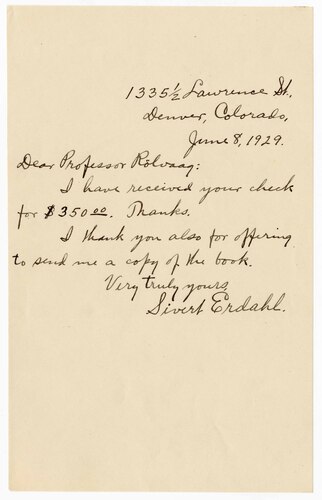 1335½ Lawrence St.,
Denver, Colorado,
June 8, 1929.
Dear Professor Rolvaag:
I have received your check
for $350.00. Thanks.
I thank you also for offering
to send me a copy of the book.
Very truly yours,
Sivert Erdahl.